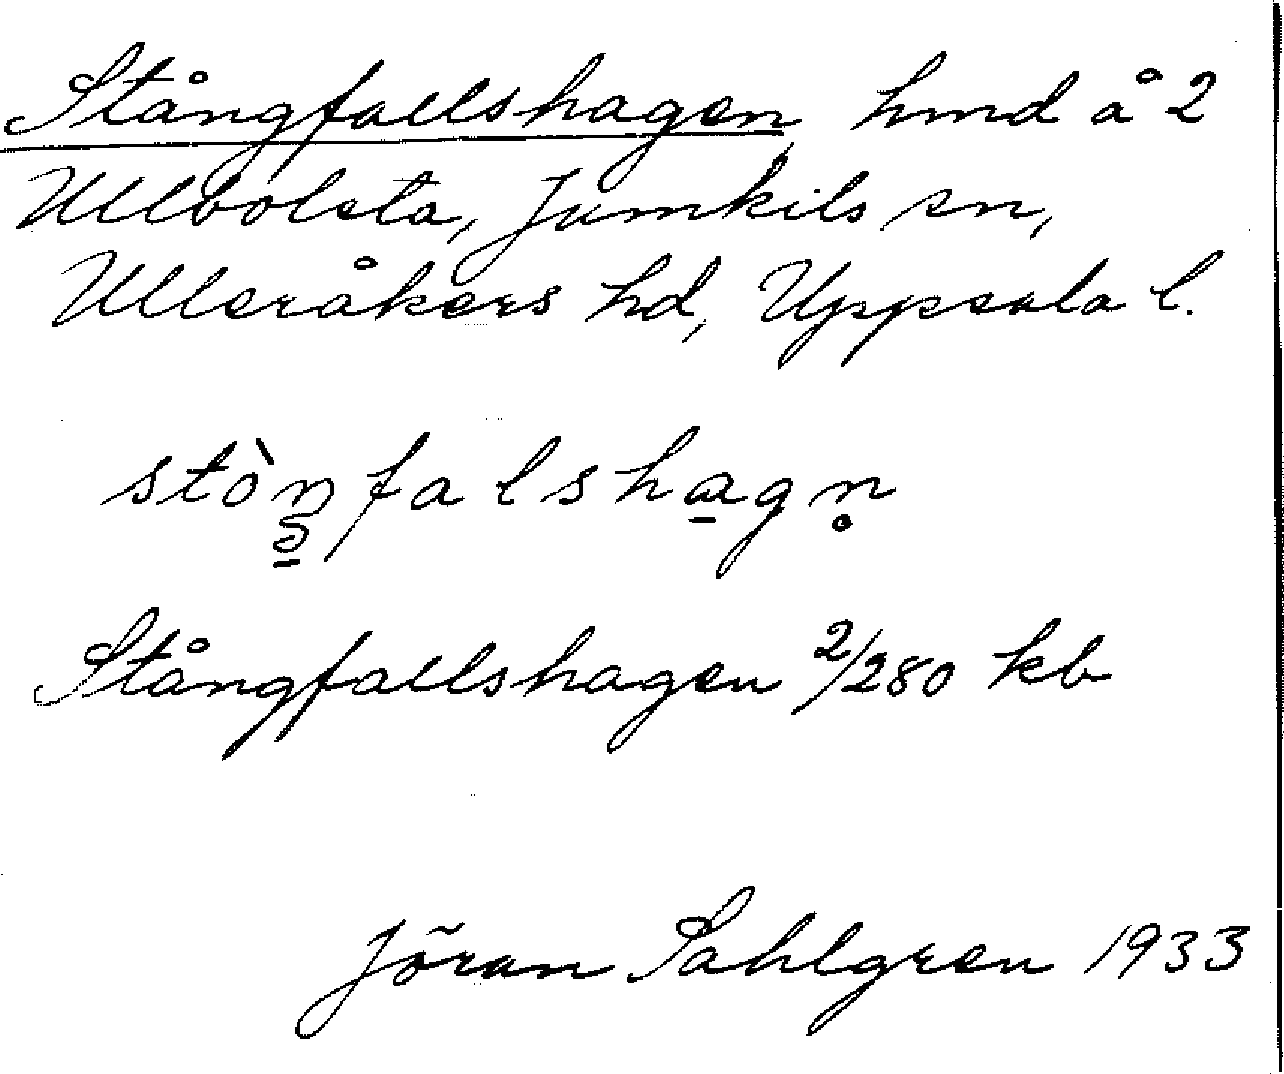 Stångfallshagen, hmd å 2
Ullbolsta, Jumkils sn,
Ulleråkers hd, Uppsala l.
stòn̠falshagn̥
Stångfallshagen 2/280 kb
Jöran Sahlgren 1933